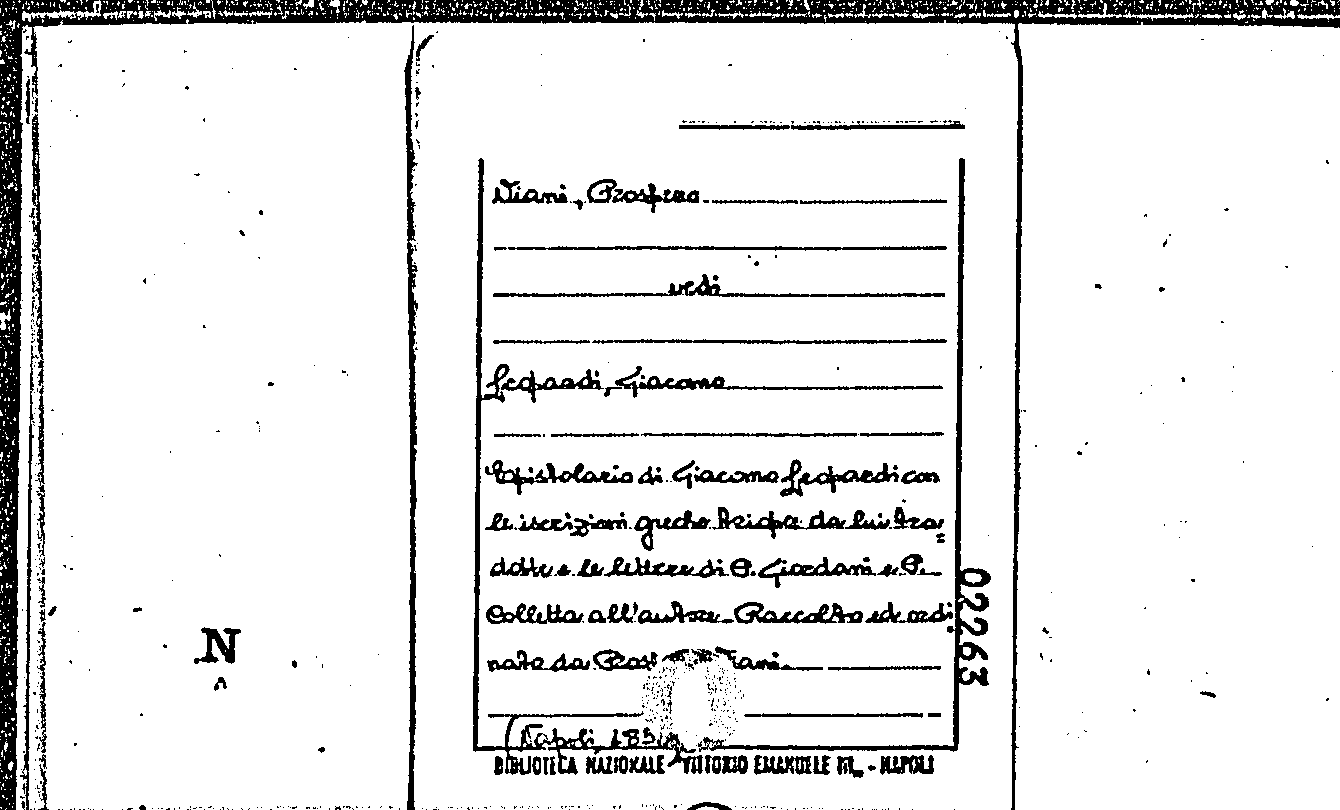 Viani, Prospero
vedi
Leopardi, Giacomo
Epistolario di Giacomo Leopardi con
le iscrizioni greche triopee da lui tra=
dotte e le lettere di P. Giordani e P.
Colletta all'autore. Raccolto ed ordi
nato da Viani.
02263
N
(Napoli, 185
BIBLIOTECA NAZIONALE VITTORIO EMANUELE III. - NAPOLI